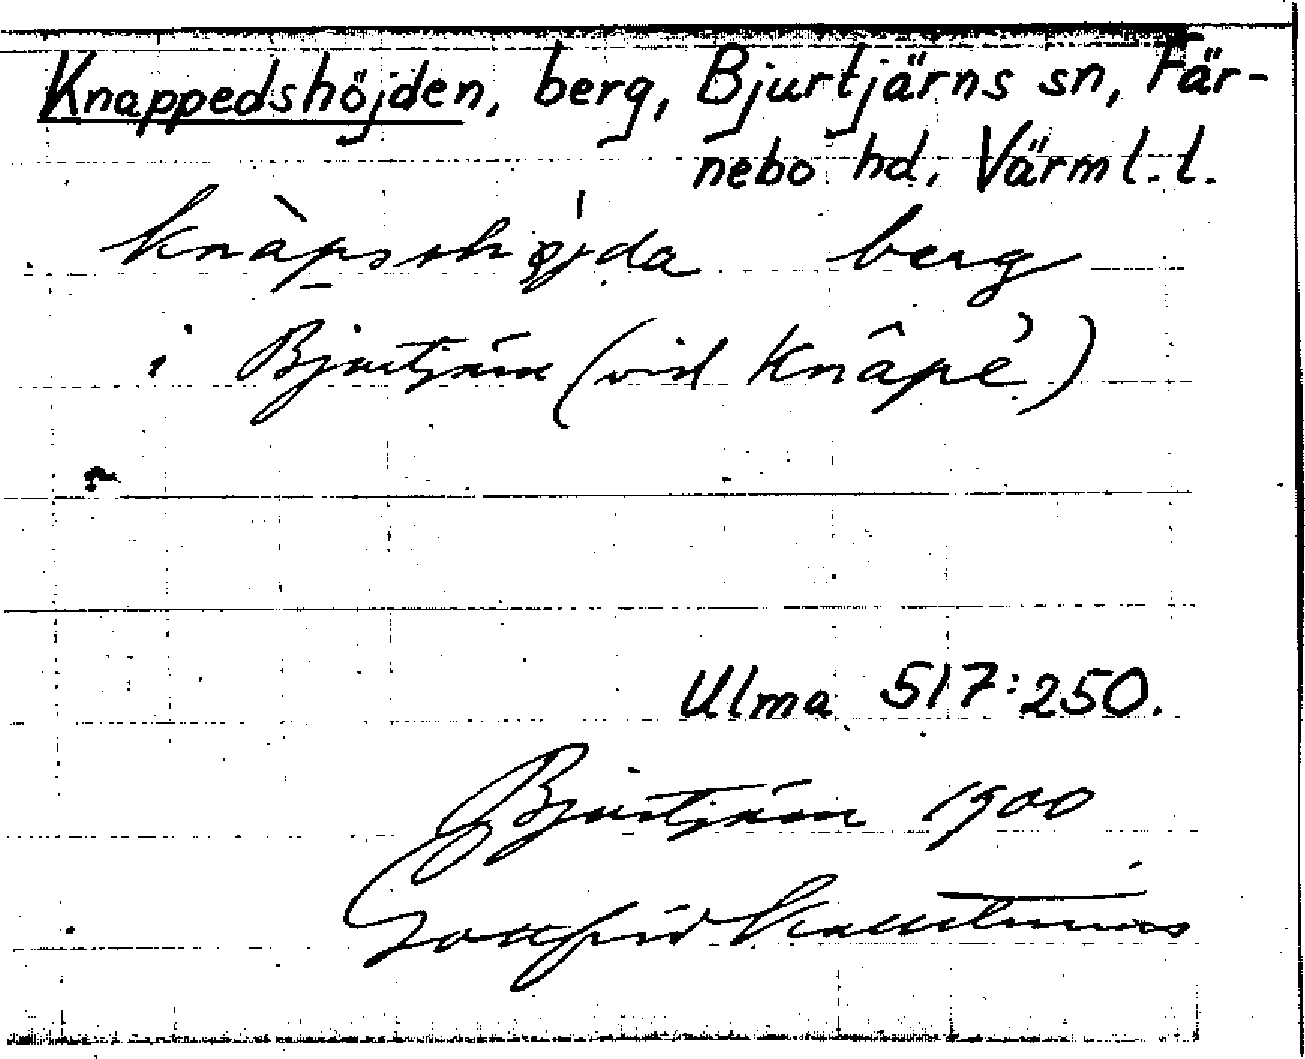 Knappedshöjden, berg, Bjurtjärns sn, Fär-
nebo hd. Värml. l.
knàpsshǿjda berg
i Bjurtjärn (vid Knâpé)
Ulma 517:250.
Bjurtjärn 1900
Gottfrid Kallstenius